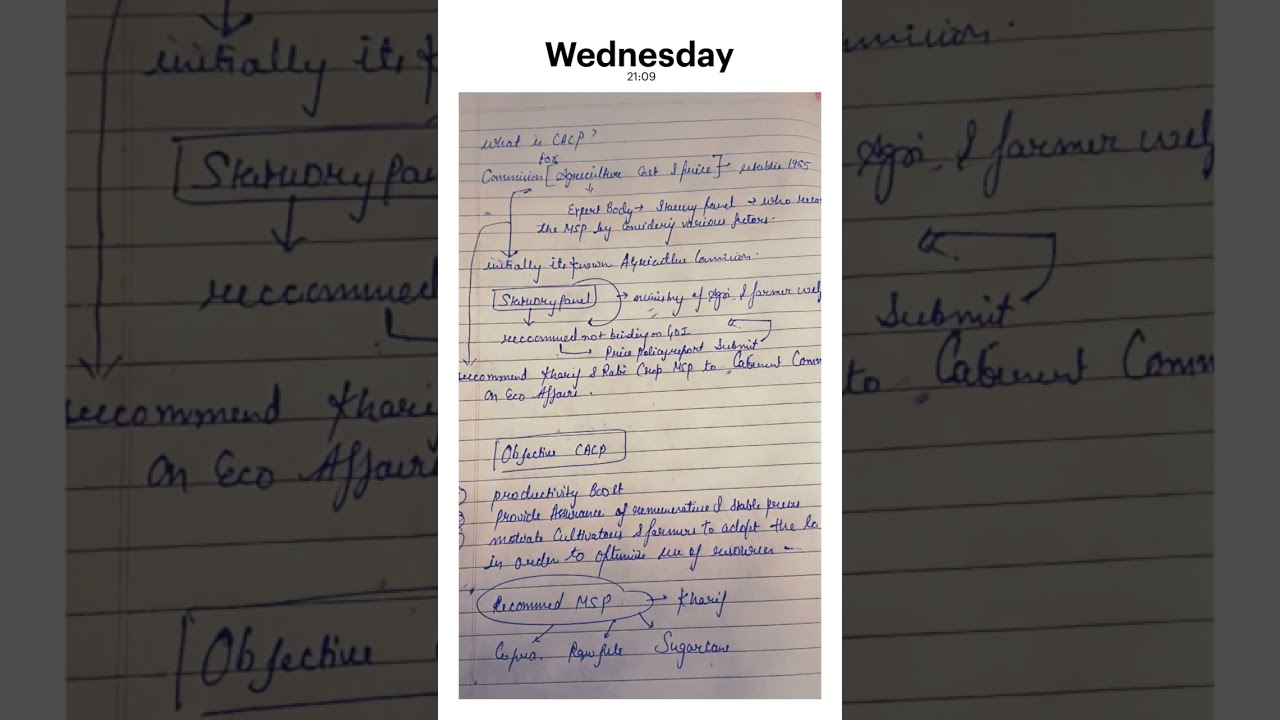 Wednesday
21:09
what is CACP?
for
Commission [Agriculture Cost & price] → 1965
Expert Body → → who
the MSP by considering various factors.
initially its known Agriculture Commission.
Statutory panel → ministry of Agri. & farmer welf
reccommed not binding on GOI
→ Price Policy report Submit
reccommend Kharif & Rabi Crop MSP to Cabinent Comm
on Eco Affairs.
Objective CACP
productivity Boost
provide Assurance of remunerative & stable prices
motivate Cultivators & farmers to adopt the
in order to optimize use of resources -
Recommed MSP → Kharif
Copra. Raw jute Sugarcane